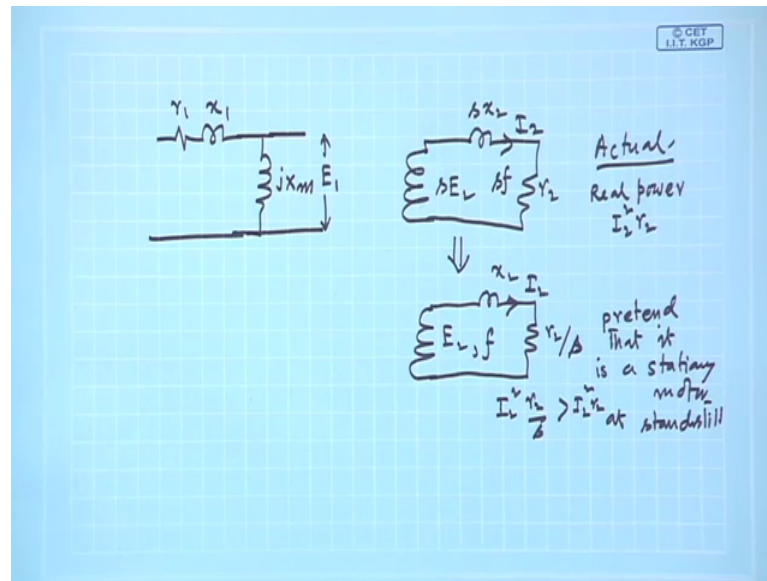 © CET
I.I.T. KGP
r₁ x₁
jxₘ E₁
sx₂ I₂
sE₂ sf r₂
Actual
Real power
I₂² r₂
x₂ I₂
E₂, f r₂/s
pretend
That it
is a stationy
motor
at standstill
I₂² r₂/s > I₂² r₂